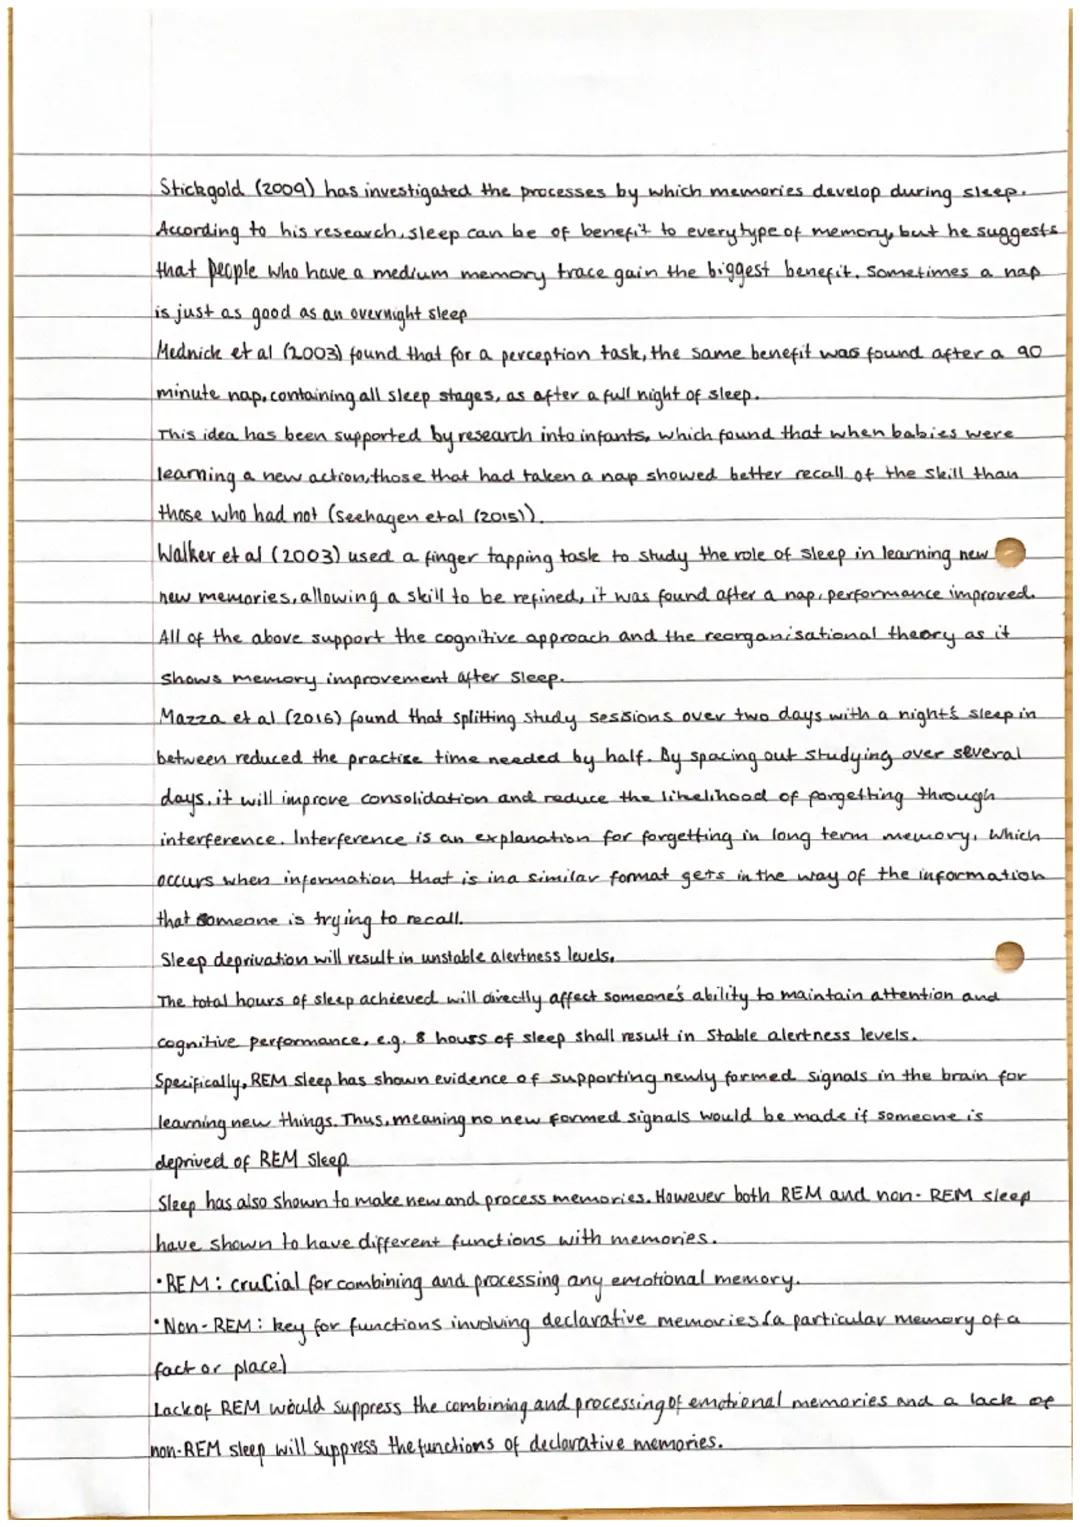 Stickgold (2009) has investigated the processes by which memories develop during sleep.
According to his research, sleep can be of benefit to every type of memory, but he suggests
that people who have a medium memory trace gain the biggest benefit. Sometimes a nap
is just as good as an overnight sleep
Mednick et al (2003) found that for a perception task, the same benefit was found after a 90
minute nap, containing all sleep stages, as after a full night of sleep.
This idea has been supported by research into infants, which found that when babies were
learning a new action, those that had taken a nap showed better recall of the skill than
those who had not (Seehagen et al (2015)).
Walker et al (2003) used a finger tapping task to study the role of sleep in learning new
new memories, allowing a skill to be refined, it was found after a nap, performance improved.
All of the above support the cognitive approach and the reorganisational theory as it
shows memory improvement after sleep.
Mazza et al (2016) found that splitting study sessions over two days with a night's sleep in
between reduced the practise time needed by half. By spacing out studying over several
days, it will improve consolidation and reduce the likelihood of forgetting through
interference. Interference is an explanation for forgetting in long term memory, which
occurs when information that is in a similar format gets in the way of the information
that someone is trying to recall.
Sleep deprivation will result in unstable alertness levels.
The total hours of sleep achieved will directly affect someone's ability to maintain attention and
cognitive performance, e.g. 8 hours of sleep shall result in stable alertness levels.
Specifically, REM sleep has shown evidence of supporting newly formed signals in the brain for
learning new things. Thus, meaning no new formed signals would be made if someone is
deprived of REM sleep.
Sleep has also shown to make new and process memories. However both REM and non-REM sleep
have shown to have different functions with memories.
•REM: crucial for combining and processing any emotional memory.
•Non-REM: key for functions involving declarative memories (a particular memory of a
fact or place)
Lack of REM would suppress the combining and processing of emotional memories and a lack of
non-REM sleep will suppress the functions of declarative memories.